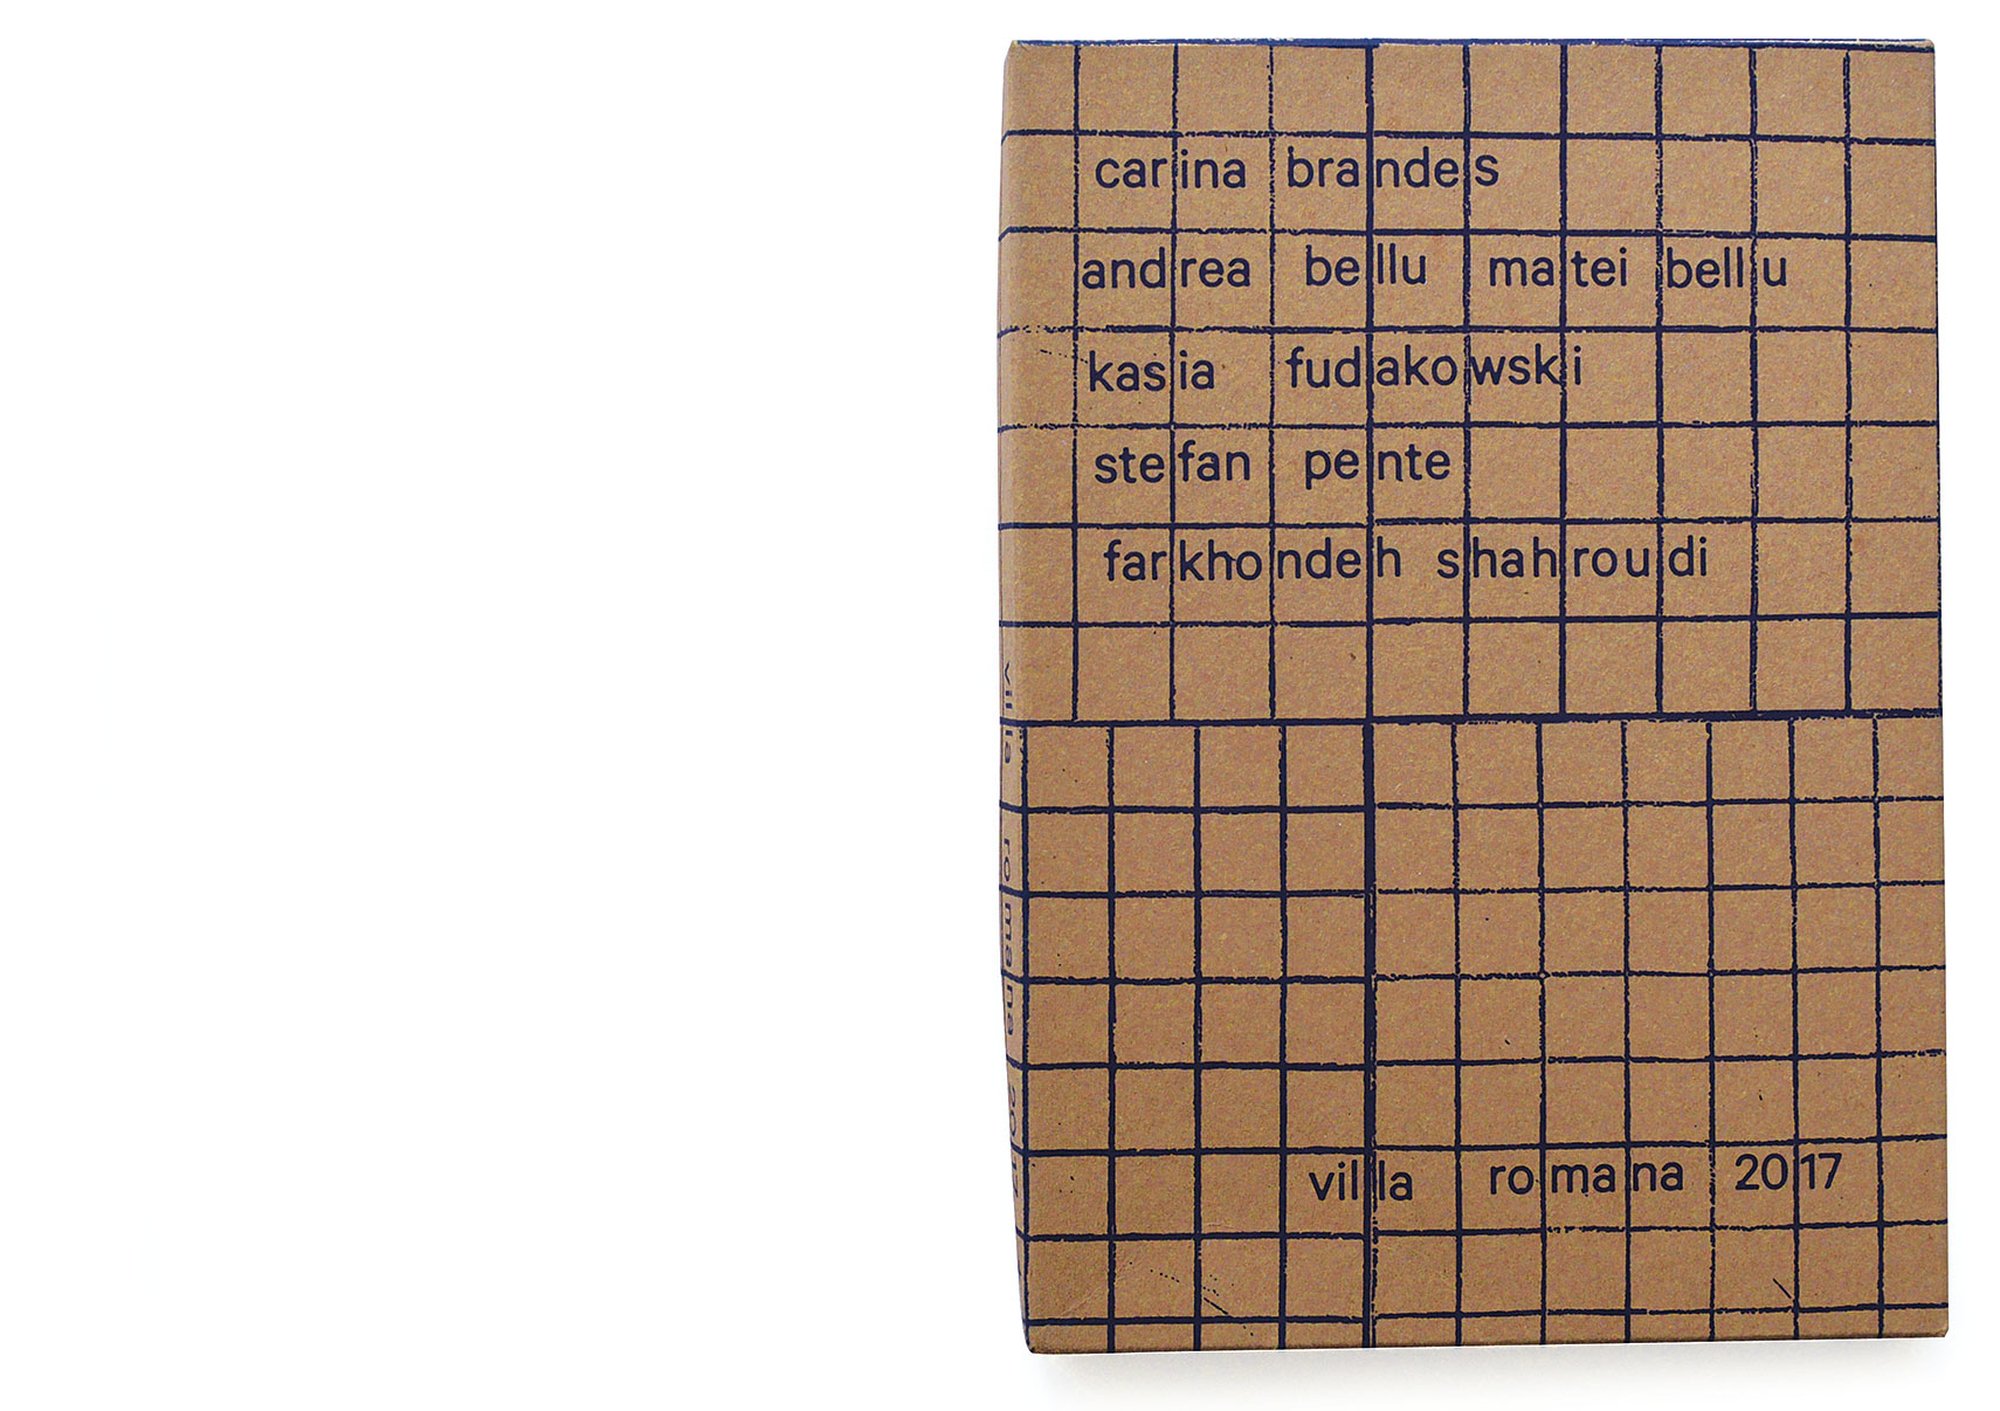 carina brandes
andrea bellu matei bellu
kasia fudakowski
stefan pente
farkhondeh shahroudi
villa romana 2017
villa romana 2017